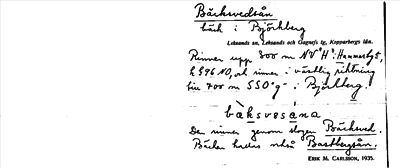 Bäcksvedsån
bäck i Björkberg
Leksands sn, Leksands och Gagnefs tg, Kopparbergs län.
Rinner upp 800 m NV "H" i Hammarby t,
k 596 NO, och rinner i västlig riktning
till 700 m SSO "g" i Björkberg.
bàksvesåna
Den rinner genom skogen Bäcksved.
Bäcken kallas också Bastbergsån.
ERIK M. CARLSSON, 1935.